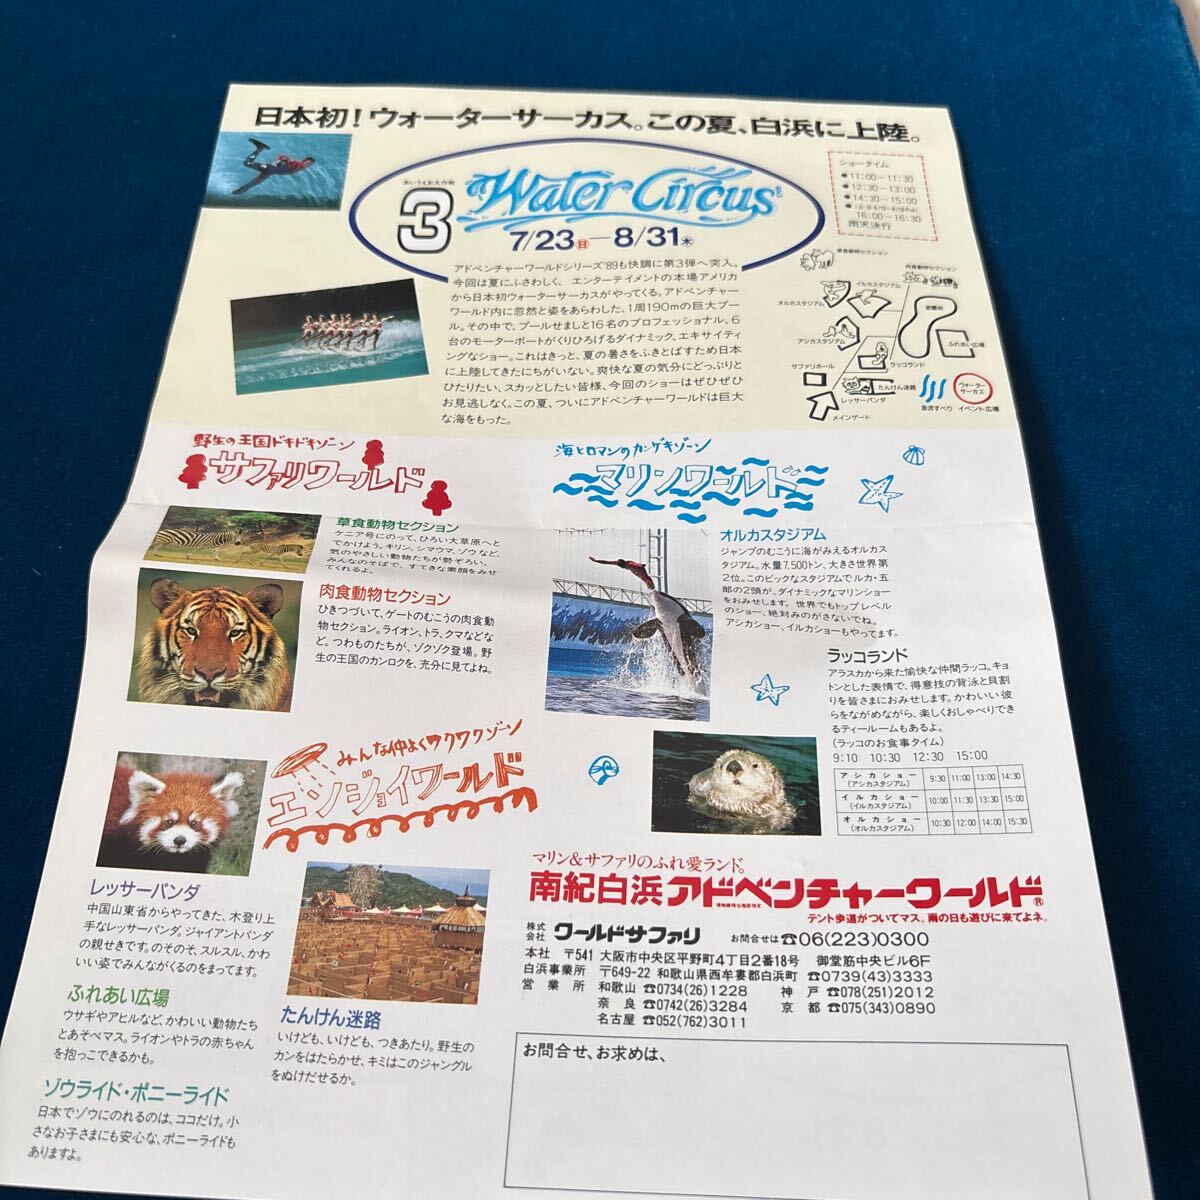 日本初!ウォーターサーカス。この夏、白浜に上陸。
あいうえお大作戦
3
Water Circus
7/23日—8/31木
ショータイム
●11:00−11:30
●12:30−13:00
●14:30−15:00
16:00−16:30
雨天決行
アドベンチャーワールドシリーズ'89も快調に第3弾へ突入。
今回は夏にふさわしく、エンターテイメントの本場アメリカ
から日本初ウォーターサーカスがやってくる。アドベンチャー
ワールド内に忽然と姿をあらわした、1周190mの巨大プー
ル。その中で、プールせましと16名のプロフェッショナル、6
台のモーターボートがくりひろげるダイナミック、エキサイティ
ングなショー。これはきっと、夏の暑さをふきとばすため日本
に上陸してきたにちがいない。爽快な夏の気分にどっぷりと
ひたりたい、スカッとしたい皆様、今回のショーはぜひぜひ
お見逃しなく。この夏、ついにアドベンチャーワールドは巨大
な海をもった。
草食動物セクション
肉食動物セクション
イルカスタジアム
オルカスタジアム
遊園地
アシカスタジアム
ふれあい広場
ラッコランド
サファリホール
たんけん迷路
レッサーパンダ
メインゲート
急流すべり
ウォーターサーカス
イベント広場
野生の王国ドキドキゾーン
サファリワールド
草食動物セクション
ケニア号にのって、ひろい大草原へと
でかけよう。キリン、シマウマ、ゾウなど、
気のやさしい動物たちが勢ぞろい。
みんなのそばで、すてきな素顔をみせ
てくれるよ。
肉食動物セクション
ひきつづいて、ゲートのむこうの肉食動
物セクション。ライオン、トラ、クマなどな
ど。つわものたちが、ゾクゾク登場。野
生の王国のカンロクを、充分に見てよね。
海とロマンのカンゲキゾーン
マリンワールド
オルカスタジアム
ジャンプのむこうに海がみえるオルカス
タジアム。水量7,500トン、大きさ世界第
2位。このビックなスタジアムでルカ・五
郎の2頭が、ダイナミックなマリンショー
をおみせします。世界でもトップレベル
のショー、絶対みのがさないでね。
アシカショー、イルカショーもやってます。
ラッコランド
アラスカから来た愉快な仲間ラッコ。キョ
トンとした表情で、得意技の背泳と貝割
りを皆さまにおみせします。かわいい彼
らをながめながら、楽しくおしゃべりでき
るティールームもあるよ。
(ラッコのお食事タイム)
9:10 10:30 12:30 15:00
アシカショー (アシカスタジアム) 9:30 11:00 13:00 14:30
イルカショー (イルカスタジアム) 10:00 11:30 13:30 15:00
オルカショー (オルカスタジアム) 10:30 12:00 14:00 15:30
みんな仲よくワクワクゾーン
エンジョイワールド
レッサーパンダ
中国山東省からやってきた、木登り上
手なレッサーパンダ。ジャイアントパンダ
の親せきです。のそのそ、スルスル、かわ
いい姿でみんながくるのをまってます。
ふれあい広場
ウサギやアヒルなど、かわいい動物たち
とあそべマス。ライオンやトラの赤ちゃん
を抱っこできるかも。
ゾウライド・ポニーライド
日本でゾウにのれるのは、ココだけ。小
さなお子さまにも安心な、ポニーライドも
ありますよ。
たんけん迷路
いけども、いけども、つきあたり。野生の
カンをはたらかせ、キミはこのジャングル
をぬけだせるか。
マリン&サファリのふれ愛ランド。
南紀白浜アドベンチャーワールド®
テント歩道がついてマス。雨の日も遊びに来てよネ。
株式会社 ワールドサファリ お問合せは☎06(223)0300
本社 〒541 大阪市中央区平野町4丁目2番18号 御堂筋中央ビル6F
白浜事業所 〒649-22 和歌山県西牟婁郡白浜町 ☎0739(43)3333
営業所 和歌山 ☎0734(26)1228 神戸 ☎078(251)2012
奈良 ☎0742(26)3284 京都 ☎075(343)0890
名古屋 ☎052(762)3011
お問合せ、お求めは、